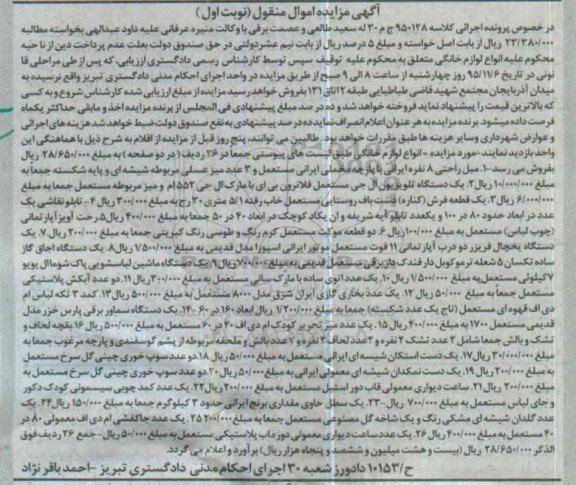 آگهی مزایده اموال منقول (نوبت اول)
در خصوص پرونده اجرائی کلاسه ۹۵۰۱۳۸ ج م ۳۰ له سعید طالعی و عصمت برقی با وکالت منیره عرفانی علیه داود عبدالهی بخواسته مطالبه
۲۳/۳۸۰/۰۰۰ ریال از بابت اصل خواسته و مبلغ ۵ درصد ریال از بابت نیم عشر دولتی در حق صندوق دولت بعلت عدم پرداخت دین از ناحیه
محکوم علیه انواع لوازم خانگی متعلق به محکوم علیه توقیف سپس توسط کارشناس رسمی دادگستری ارزیابی، که پس از طی مراحل قا
نونی در تاریخ ۹۵/۱۱/۶ روز چهارشنبه از ساعت ۸ الی ۹ صبح از طریق مزایده در واحد اجرای احکام مدنی دادگستری تبریز واقع نرسیده به
میدان آذربایجان مجتمع شهید قاضی طباطبایی طبقه ۲ اتاق ۱۳۱ بفروش خواهد رسید مزایده از مبلغ ارزیابی شده کارشناس شروع و به کسی
که بالاترین قیمت را پیشنهاد نماید فروخته خواهد شد و ده در صد مبلغ پیشنهادی فی المجلس از برنده مزایده اخذ و مابقی حداکثر یکماه
فرصت داده میشود. برنده مزایده به هر عنوان اعلام انصراف نماید ده در صد پیشنهادی به نفع صندوق دولت ضبط خواهد شد هزینه های اجرائی
و عوارض شهرداری وسایر هزینه ها طبق مقررات خواهد بود. طالبین می توانند، پنج روز قبل از مزایده از اقلام به شرح ذیل با هماهنگی این
واحد بازدید نمایند-مورد مزایده - انواع لوازم خانگی طبق لیست های پیوستی جمعا در ۲۶ ردیف (در دو صفحه) به مبلغ ۲۸/۶۵۰/۰۰۰ ریال
بفروش می رسد -۱. مبل راحتی ۸ نفره ایرانی با پارچه مخملی ایرانی مستعمل و ۳ عدد میز عسلی مربوطه شیشه ای و پایه شکسته جمعا به
مبلغ ۱۰/۰۰۰/۰۰۰ ریال ۲. یک دستگاه تلویزیون ال جی مستعمل فلاترون بی ای با مارک ال جی ۵۵۲ ام و میز مربوطه مستعمل جمعا به مبلغ
۶/۰۰۰/۰۰۰ ریال ۳. یک قطعه فرش (کناره) دست باف روستایی مستعمل خاب رفته ۱/۵ متری ۳۰ رج به مبلغ ۳۰۰/۰۰۰ ریال ۴- تابلو نقاشی یک
عدد در ابعاد حدود ۸۰ در ۱۰۰ و یکعدد تابلو آیه شریفه و ان یکاد کوچک در ابعاد ۴۰ در ۵۰ جمعا به مبلغ ۴۰۰/۰۰۰ ریال ۵. رخت آویز آپارتمانی
(چوب لباس) مستعمل به مبلغ ۱۰۰/۰۰۰ ریال ۶. دو قطعه موکت مستعمل کرم رنگ و طوسی رنگ کبریتی جمعا به مبلغ ۲۰۰/۰۰۰ ریال ۷. یک
دستگاه یخچال فریزر دو درب آپارتمانی ۱۱ فوت مستعمل موتور ایرانی اسپورا مدل قدیمی به مبلغ ۱/۵۰۰/۰۰۰ ریال ۸. یک دستگاه اجاق گاز
ساده تکسان ۵ شعله ترموکوبل دار فندک دار برقی مستعمل قدیمی به مبلغ ۷۰۰/۰۰۰ ریال ۹. یک دستگاه ماشین لباسشویی پاک شوما ال یو یو
۷ کیلوئی مستعمل به مبلغ ۱/۵۰۰/۰۰۰ ریال ۱۰. یک عدد اتوی ساده با مارک سانی مستعمل به مبلغ ۳۰۰/۰۰۰ ریال ۱۱. دو عدد آبکش پلاستیکی
مستعمل جمعا به مبلغ ۵۰/۰۰۰ ریال ۱۲. یک عدد بخاری گازی ایران شرق مدل ۸۰۰۰ مستعمل به مبلغ ۵۰۰/۰۰۰ ریال ۱۳. کمد ۳ تکه لباس ام
دی اف قهوه ای مستعمل (تاج یک عدد شکسته) جمعا به مبلغ ۱/۲۰۰/۰۰۰ ریال ابعاد ۱۶۰ در ۶۰ -۱۴. یک دستگاه سماور برقی پارس خزر مدل
قدیمی مستعمل ۱۷۰۰ به مبلغ ۴۰۰/۰۰۰ ریال ۱۵. یک عدد میز تحریر کودک ام دی اف ۴۰ در ۶۰ مستعمل به مبلغ ۵۰۰/۰۰۰ ریال ۱۶. بقچه لحاف و
تشک و بالش جمعا شامل ۲ عدد تشک ۲ نفره و ۲ عدد لحاف ۲ نفره و ۷ عدد بالش و ملحفه مربوطه از پشم گوسفندی و پارچه مرغوب جمعا به
مبلغ ۳/۰۰۰/۰۰۰ ریال ۱۷. یک دست استکان شیسه ای ایرانی مستعمل به مبلغ ۵۰/۰۰۰ ریال ۱۸. دو عدد سوپ خوری چینی گل سرخ مستعمل
به مبلغ ۲۰۰/۰۰۰ ریال ۱۹. یک دست نمکدان شیشه ای معمولی ایرانی به مبلغ ۵۰/۰۰۰ ریال ۲۰. دو عدد سوپ خوری چینی گل سرخ مستعمل به
مبلغ ۲۰۰/۰۰۰ ریال ۲۱. ساعت دیواری معمولی قاب دور استیل مستعمل به مبلغ ۲۰۰/۰۰۰ ریال ۲۲. یک عدد کمد چوبی سیسمونی کودک دکور
و جای لباس مستعمل به مبلغ ۷۰۰/۰۰۰ ریال -۲۳. یک سطل حاوی مقداری برنج ایرانی حدود ۳ کیلوگرم جمعا به مبلغ ۱۵۰/۰۰۰ ریال ۲۴. یک
عدد گلدان شیشه ای مشکی رنگ و یک شاخه گل مصنوعی مستعمل جمعا به مبلغ ۲۰۰/۰۰۰ ۲۵. یک عدد جاکفشی ام دی اف معمولی ۸۰ در
۴۰ مستعمل به مبلغ ۴۰۰/۰۰۰ ریال ۲۶. یک عدد ساعت دیواری معمولی دور ماب پلاستیکی مستعمل به مبلغ ۵۰/۰۰۰ ریال- جمع ۲۶ ردیف فوق
الذکر ۲۸/۶۵۰/۰۰۰ ریال (بیست و هشت میلیون و ششصد و پنجاه هزار ریال) برآورد و اعلام می گردد.
ح/۱۰۱۵۳ دادورز شعبه ۳۰ اجرای احکام مدنی دادگستری تبریز -احمد باقر نژاد